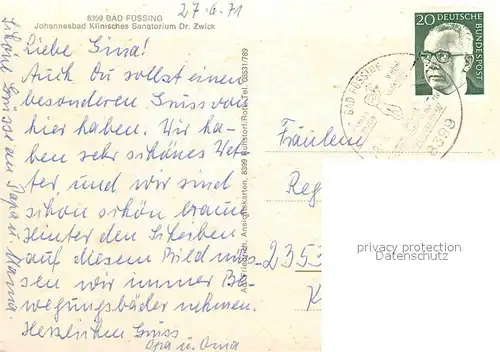 27-6-71
8399 BAD FÜSSING
Johannesbad Klinisches Sanatorium Dr. Zwick
Liebe Gina!
Auch Du sollst einen
besonderen Gruss von
hier haben. Wir ha-
ben sehr schönes Wet-
ter, und wir sind
schon schön braun.
Hinter den Scheiben
auf diesem Bild müs-
sen wir immer Be-
wegungsbäder nehmen.
Herzlichen Gruss
Opa u. Oma
Schöne Grüsse an Papa u. Mama.
Ansichtskarten, 8399 Ruhstorf/Rott, Tel. 08531/789
20 DEUTSCHE
BUNDESPOST
BAD FÜSSING
8399
Fräulein
Reg
2353
K
privacy protection
Datenschutz